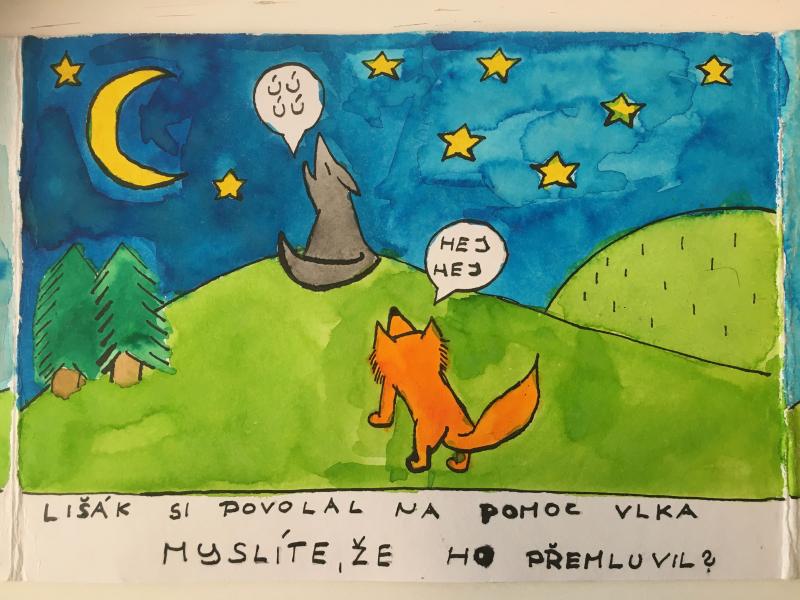 Ú Ú
Ú Ú
HEJ
HEJ
LIŠÁK SI POVOLAL NA POMOC VLKA
MYSLÍTE, ŽE HO PŘEMLUVIL?